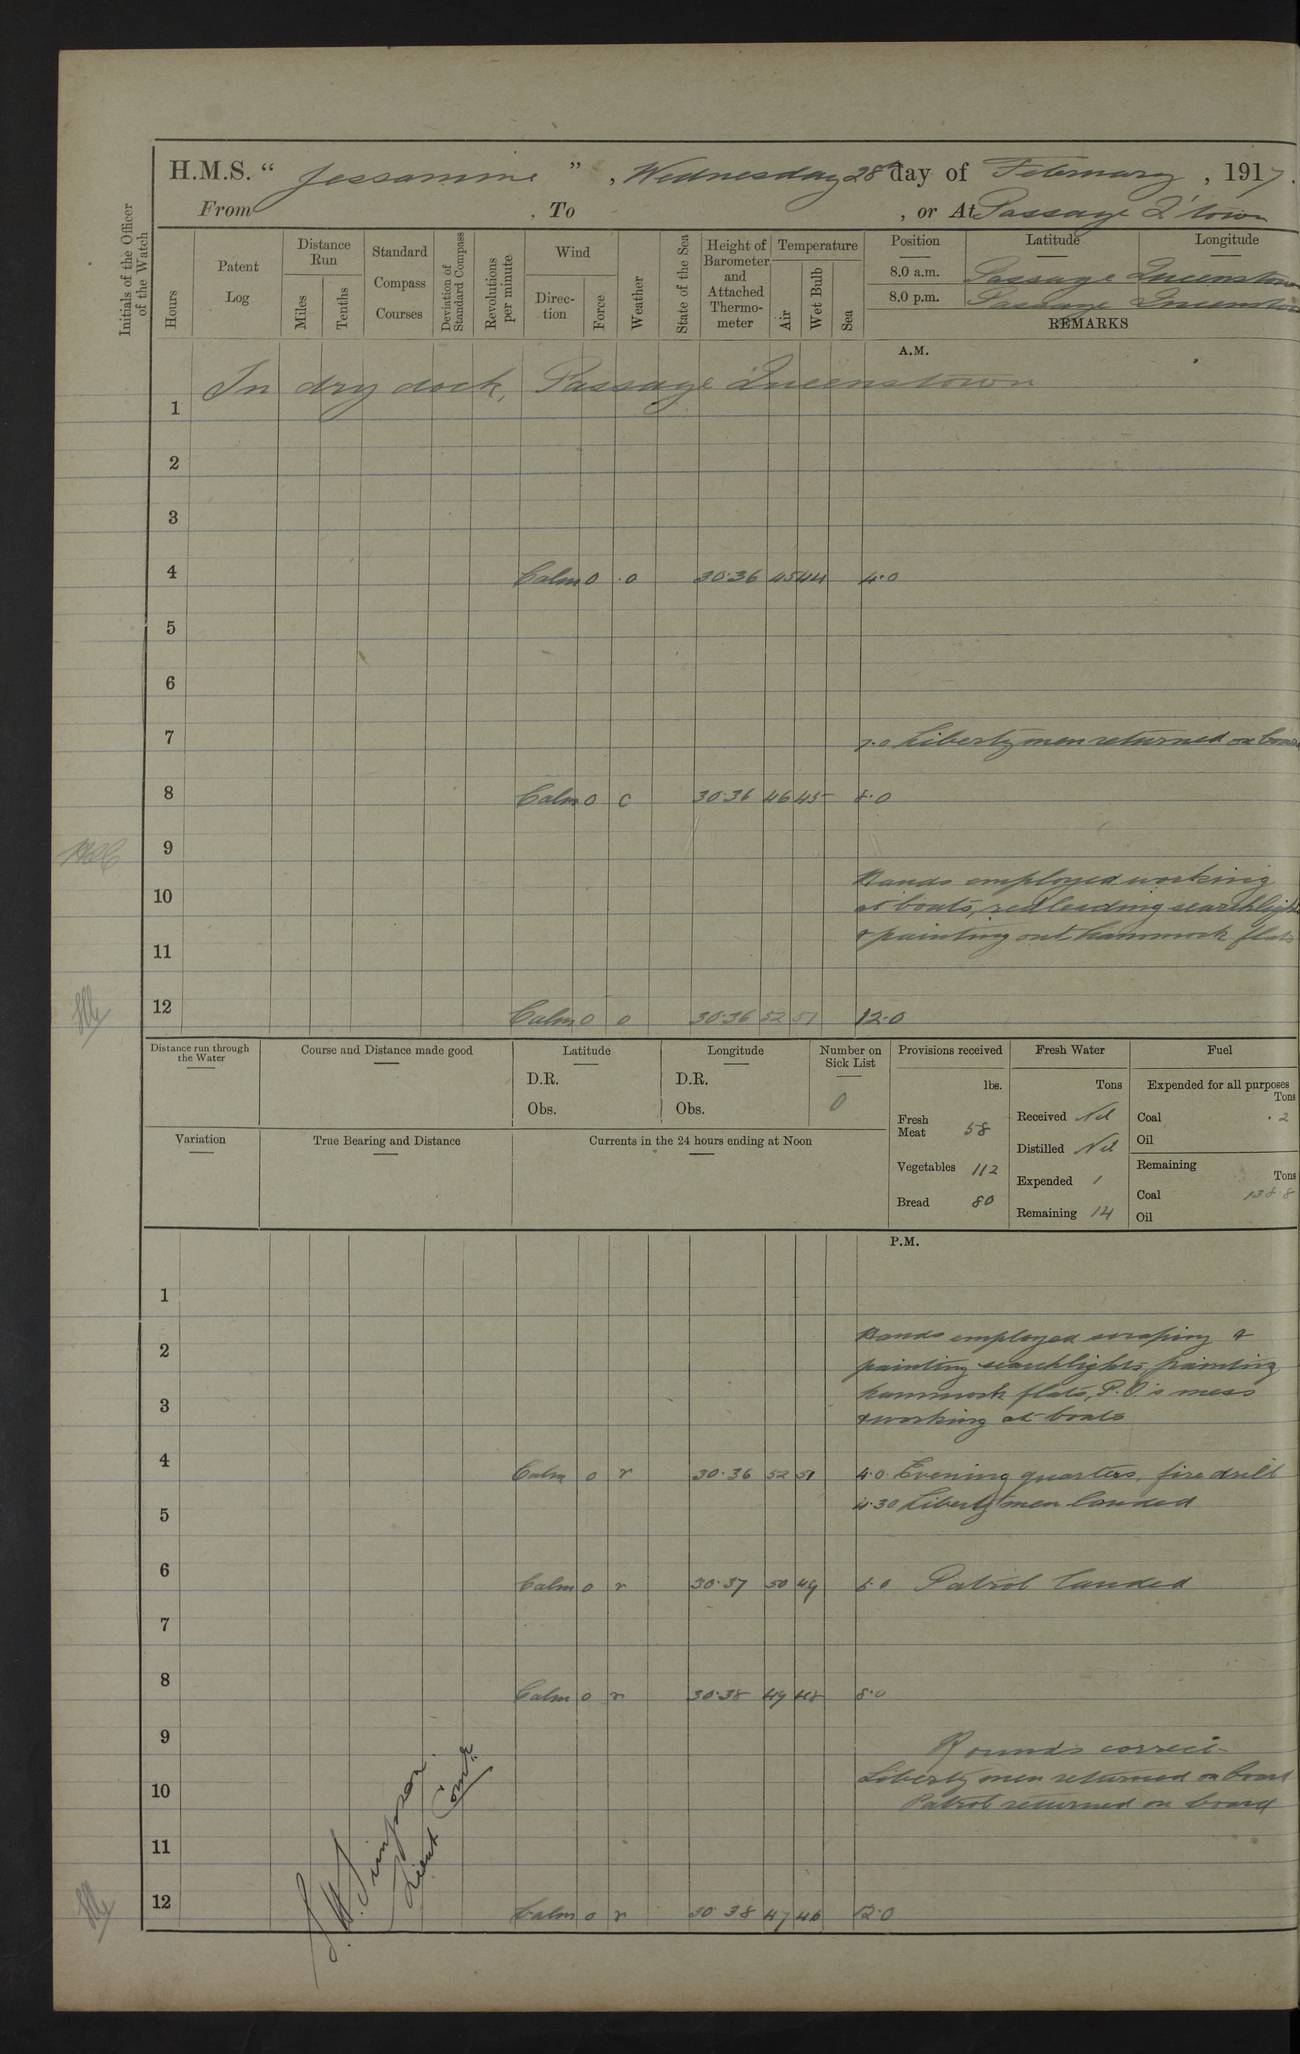 H.M.S. “ Jessamine ” , Wednesday 28th day of February , 1917.
From , To , or At Passage Q'town
Initials of the Officer of the Watch
Hours
Patent Log
Distance Run
Miles
Tenths
Standard Compass Courses
Deviation of Standard Compass
Revolutions per minute
Wind
Direc- tion
Force
Weather
State of the Sea
Height of Barometer and Attached Thermo- meter
Temperature
Air
Wet Bulb
Sea
Position Latitude Longitude
8.0 a.m. Passage Queenstown
8.0 p.m. Passage Queenstown
REMARKS
A.M.
In dry dock, Passage Queenstown
1
2
3
4 Calm 0 o 30.36 45 44 4.0
5
6
7 7.0 Liberty men returned on board
8 Calm 0 c 30.36 46 45 8.0
9
Hands employed working
10 at boats, redleading searchlights
& painting out hammock flats
11
12 Calm 0 o 30.36 52 51 12.0
Distance run through the Water
Course and Distance made good
Latitude
D.R.
Obs.
Longitude
D.R.
Obs.
Number on Sick List
0
Provisions received
lbs.
Fresh Meat 58
Vegetables 112
Bread 80
Fresh Water
Tons
Received Nil
Distilled Nil
Expended 1
Remaining 14
Fuel
Expended for all purposes
Tons
Coal .2
Oil
Remaining
Tons
Coal 138.8
Oil
Variation
True Bearing and Distance
Currents in the 24 hours ending at Noon
P.M.
1
Hands employed scraping &
2 painting searchlights, painting
hammock flats, P.O.'s mess
3 & working at boats
4 Calm 0 r 30.36 52 51 4.0 Evening quarters, fire drill
4.30 Liberty men landed
5
6 Calm 0 r 30.37 50 49 6.0 Patrol landed
7
8 Calm 0 r 30.38 49 48 8.0
9 Rounds correct
Liberty men returned on board
10 Patrol returned on board
11
12 Calm 0 r 30.38 47 46 12.0
Simpson
Lieut Comdr